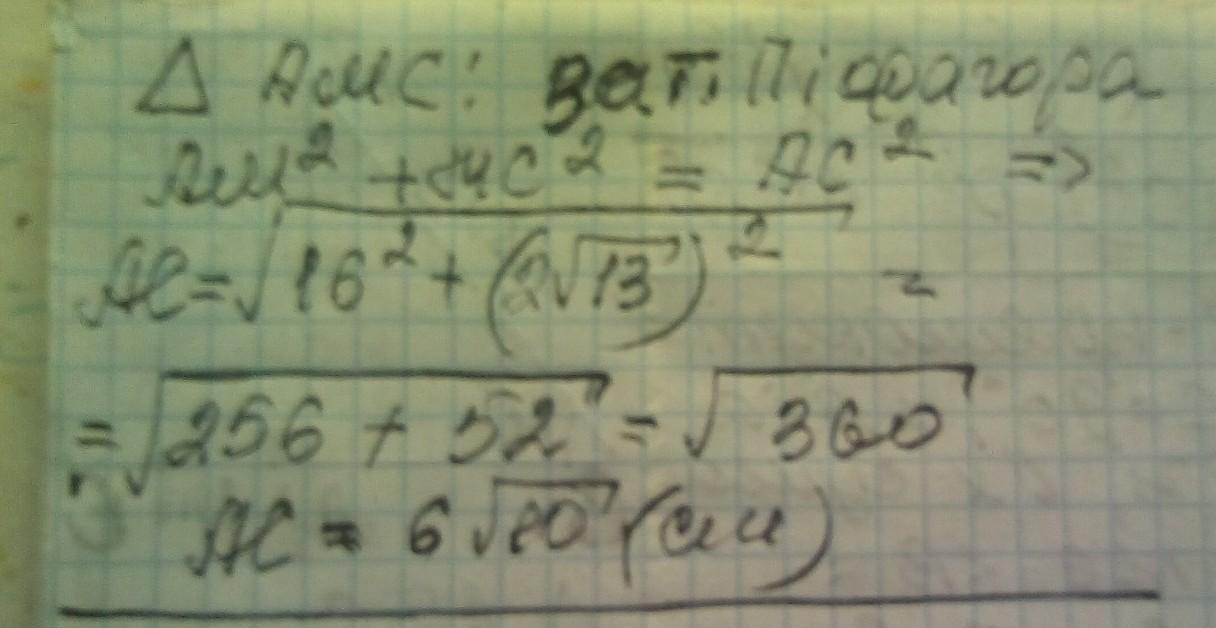 △ AMC: за т. Піфагора
AM² + MC² = AC² =>
AC = √(16² + (2√13)²) =
= √(256 + 52) = √360
AC = 6√10 (см)